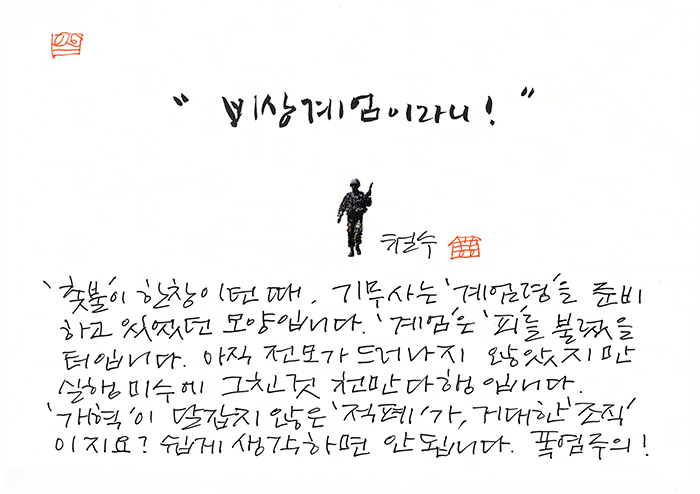 " 비상계엄이라니! "
철수
'촛불'이 한창이던 때, 기무사는 '계엄령'을 준비
하고 있었던 모양입니다. '계엄'은 '피'를 불렀을
터입니다. 아직 전모가 드러나지 않았지만
실행미수에 그친것 천만다행입니다.
'개혁'이 달갑지 않은 '적폐'가, 거대한 '조직'
이지요? 쉽게 생각하면 안됩니다. 폭염주의!